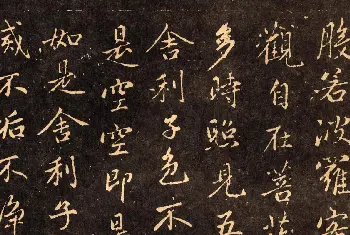 般若波羅蜜
觀自在菩薩
多時照見五
舍利子色不
是空空即是
如是舍利子
滅不垢不淨